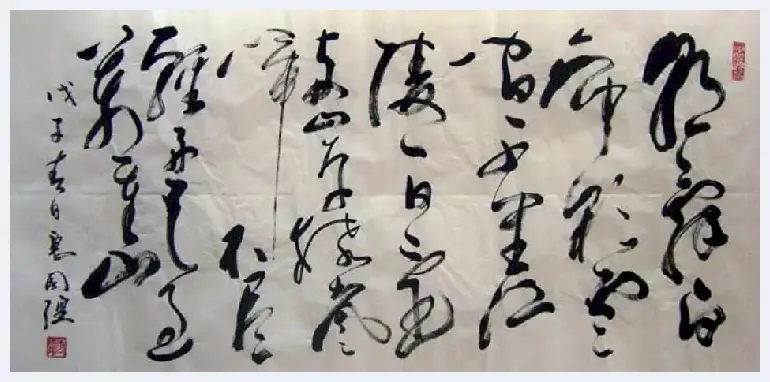 朝辞白
帝彩云
间千里江
陵一日还
两岸猿声
啼不尽
轻舟已过
万重山
戊子春日